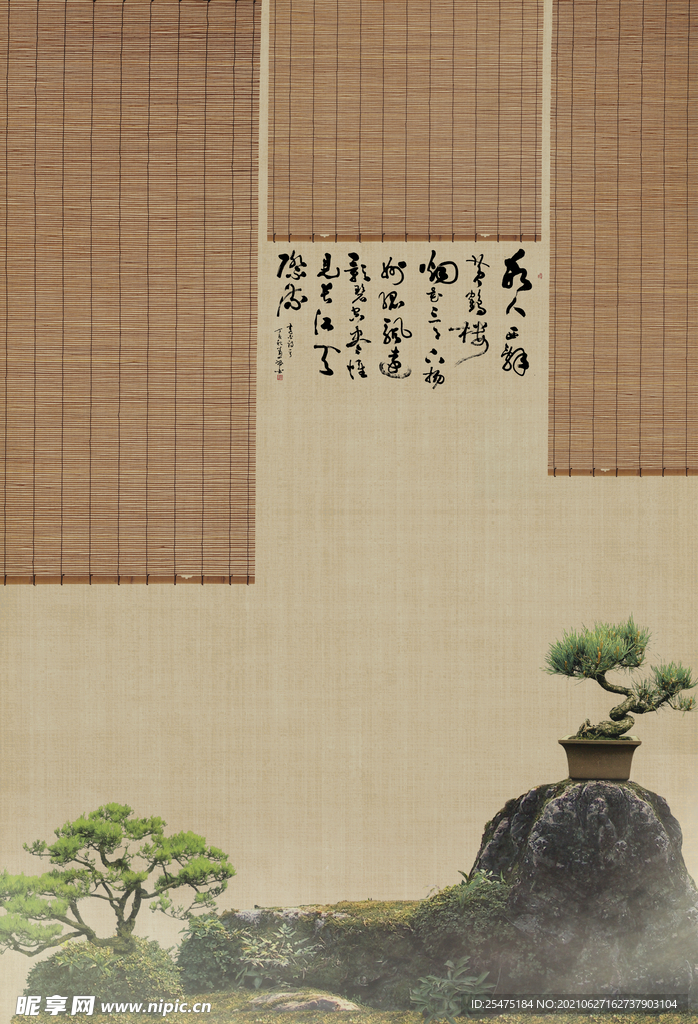 故人西辭
黄鶴楼
烟花三月下扬
州孤帆遠
影碧空尽惟
見长江天
際流
昵享网 www.nipic.cn
ID:25475184 NO:20210627162737903104